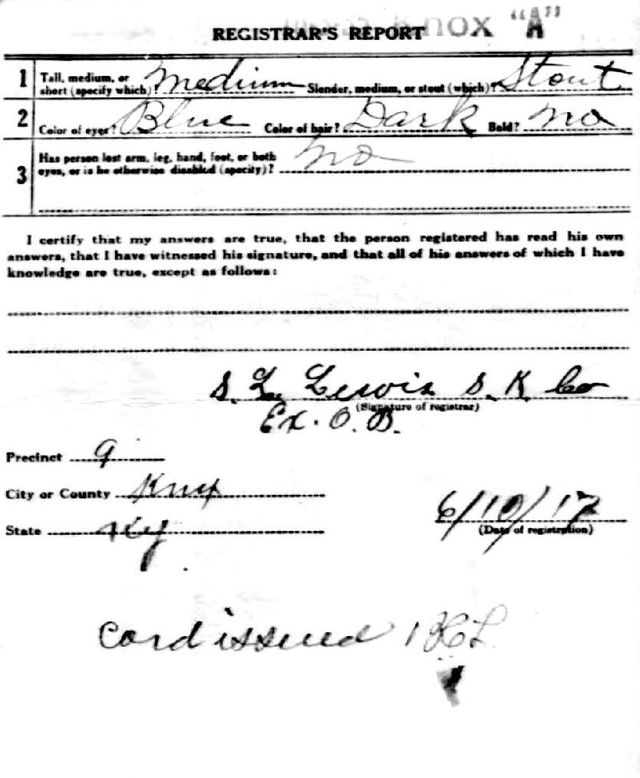 REGISTRAR'S REPORT "A"
1 Tall, medium, or short (specify which)? Medium Slender, medium, or stout (which)? Stout
2 Color of eyes? Blue Color of hair? Dark Bald? no
3 Has person lost arm, leg, hand, foot, or both
eyes, or is he otherwise disabled (specify)? no
I certify that my answers are true, that the person registered has read his own
answers, that I have witnessed his signature, and that all of his answers of which I have
knowledge are true, except as follows:
S. L. Lewis S. K. Co
(Signature of registrar)
Ex. O. B.
Precinct 9
City or County Knox
State Ky
6/10/17
(Date of registration)
Card issued